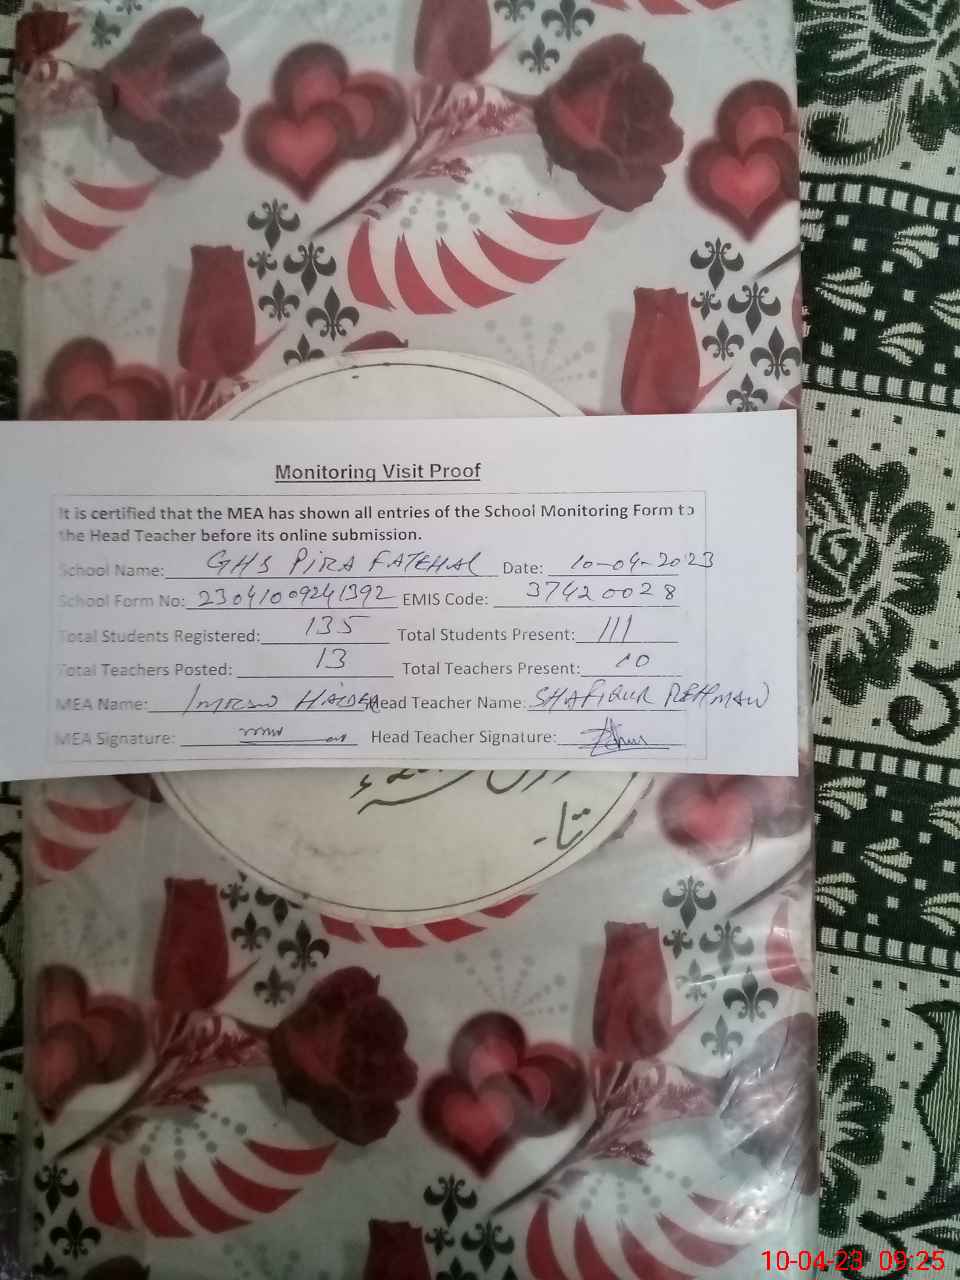 Monitoring Visit Proof
It is certified that the MEA has shown all entries of the School Monitoring Form to
the Head Teacher before its online submission.
School Name: GHS PIRA FATEHAL Date: 10-04-2023
School Form No: 23041009241392 EMIS Code: 37420028
Total Students Registered: 135 Total Students Present: 111
Total Teachers Posted: 13 Total Teachers Present: 10
MEA Name: IMRAN HAIDER Head Teacher Name: SHAFIQUR REHMAN
MEA Signature: Head Teacher Signature:
تا۔
10-04-23 09:25